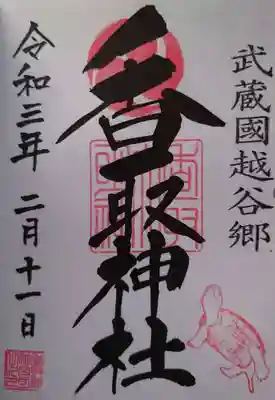 武蔵國越谷郷
香取神社
令和三年 二月十一日